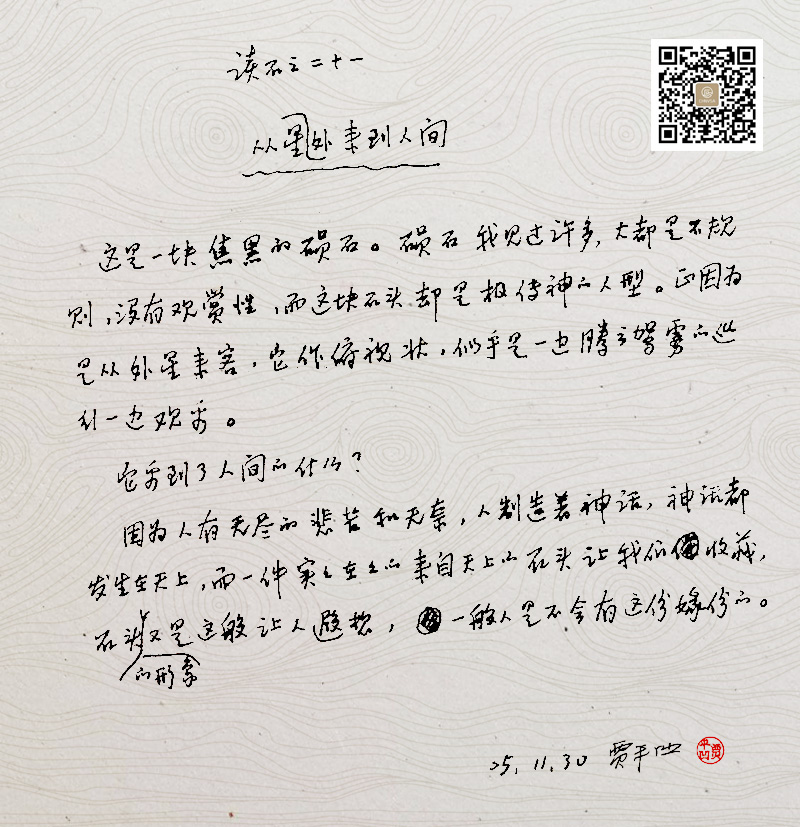 读石之二十一
从星外来到人间
这是一块焦黑的陨石。陨石我见过许多,大都是不规
则,没有观赏性,而这块石头却是极传神的人型。正因为
是从外星来客,它作俯视状,似乎是一边腾云驾雾的巡
行一边观看。
它看到了人间的什么?
因为人有无尽的悲苦和无奈,人制造着神话,神话都
发生在天上,而一件实实在在的来自天上的石头让我们收藏,
石头的形象又是这般让人遐想,一般人是不会有这份缘份的。
25.11.30 贾平凹
贾平凹